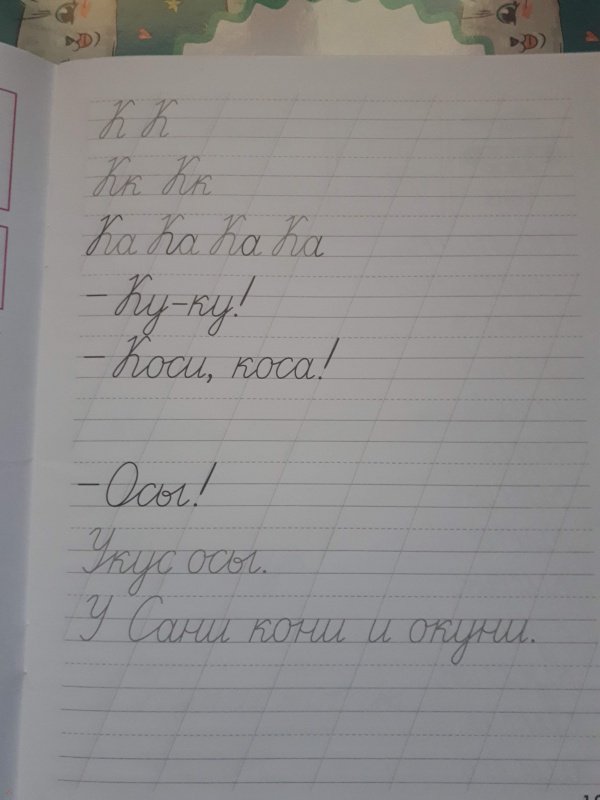 К К
Кк Кк
Ка Ка Ка Ка
– Ку-ку!
– Коси, коса!
– Осы!
Укус осы.
У Сани кони и окуни.